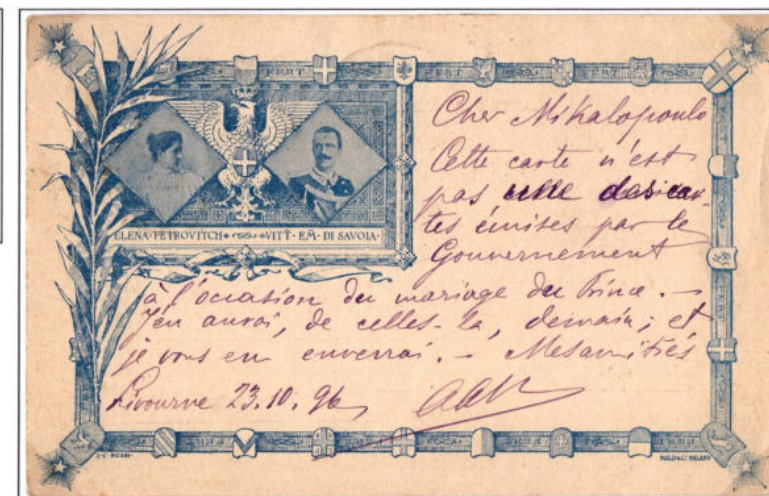 FERT FERT FERT
ELENA·PETROVITCH VITT·EM·DI SAVOIA·
Cher Mikalopoulo
Cette carte n'est
pas celle des car-
tes émises par le
Gouvernement
à l'occasion du mariage du Prince. —
J'en aurai, de celles-la, demain; et
je vous en enverrai. — Mes amitiés
Livourne 23.10.96